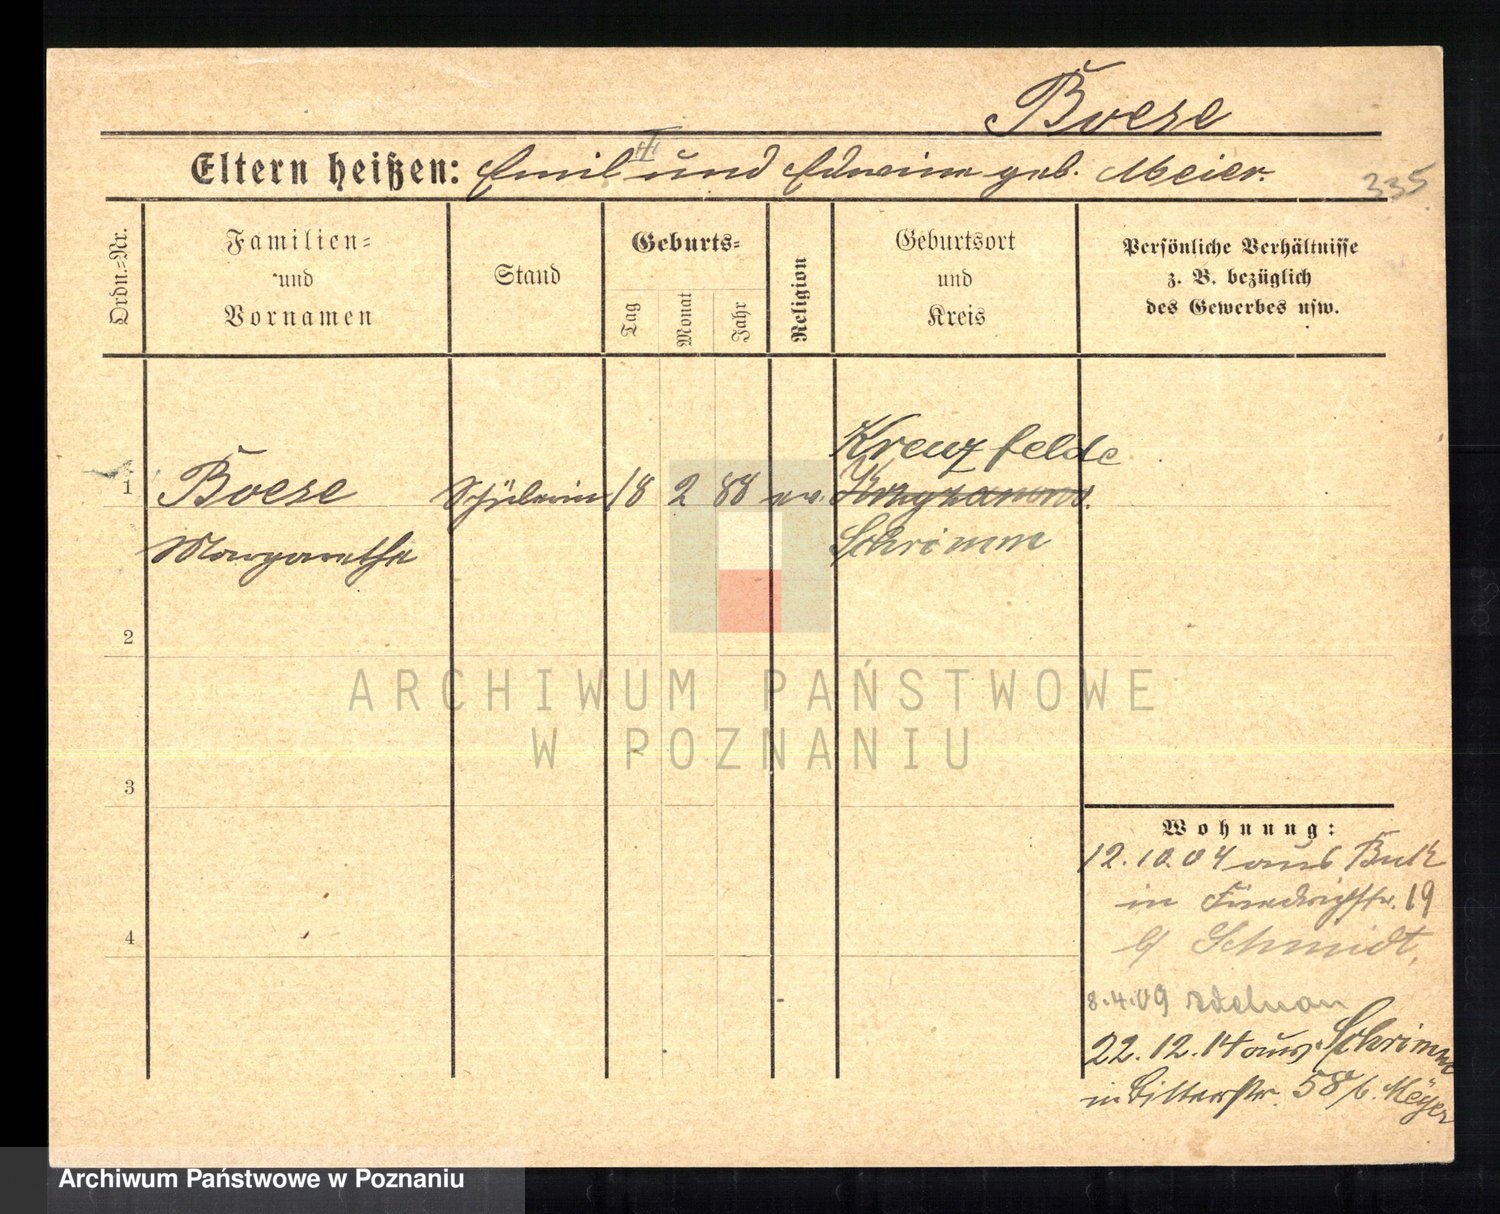 Boese
Eltern heißen: Emil II und Edwine geb. Meier.
335
Ordn.-Nr.
Familien-
und
Vornamen
Stand
Geburts-
Tag
Monat
Jahr
Religion
Geburtsort
und
Kreis
Persönliche Verhältnisse
z. B. bezüglich
des Gewerbes usw.
1
Boese
Margarethe
Schülerin
18
2
88
ev.
Kreuzfelde
Schrimm
2
3
4
Wohnung:
12.10.04 aus Buk
in Friedrichstr. 19
b/ Schmidt,
8.4.09
22.12.14 aus Schrimm
in Ritterstr. 58 b. Meyer
ARCHIWUM PAŃSTWOWE
W POZNANIU
Archiwum Państwowe w Poznaniu